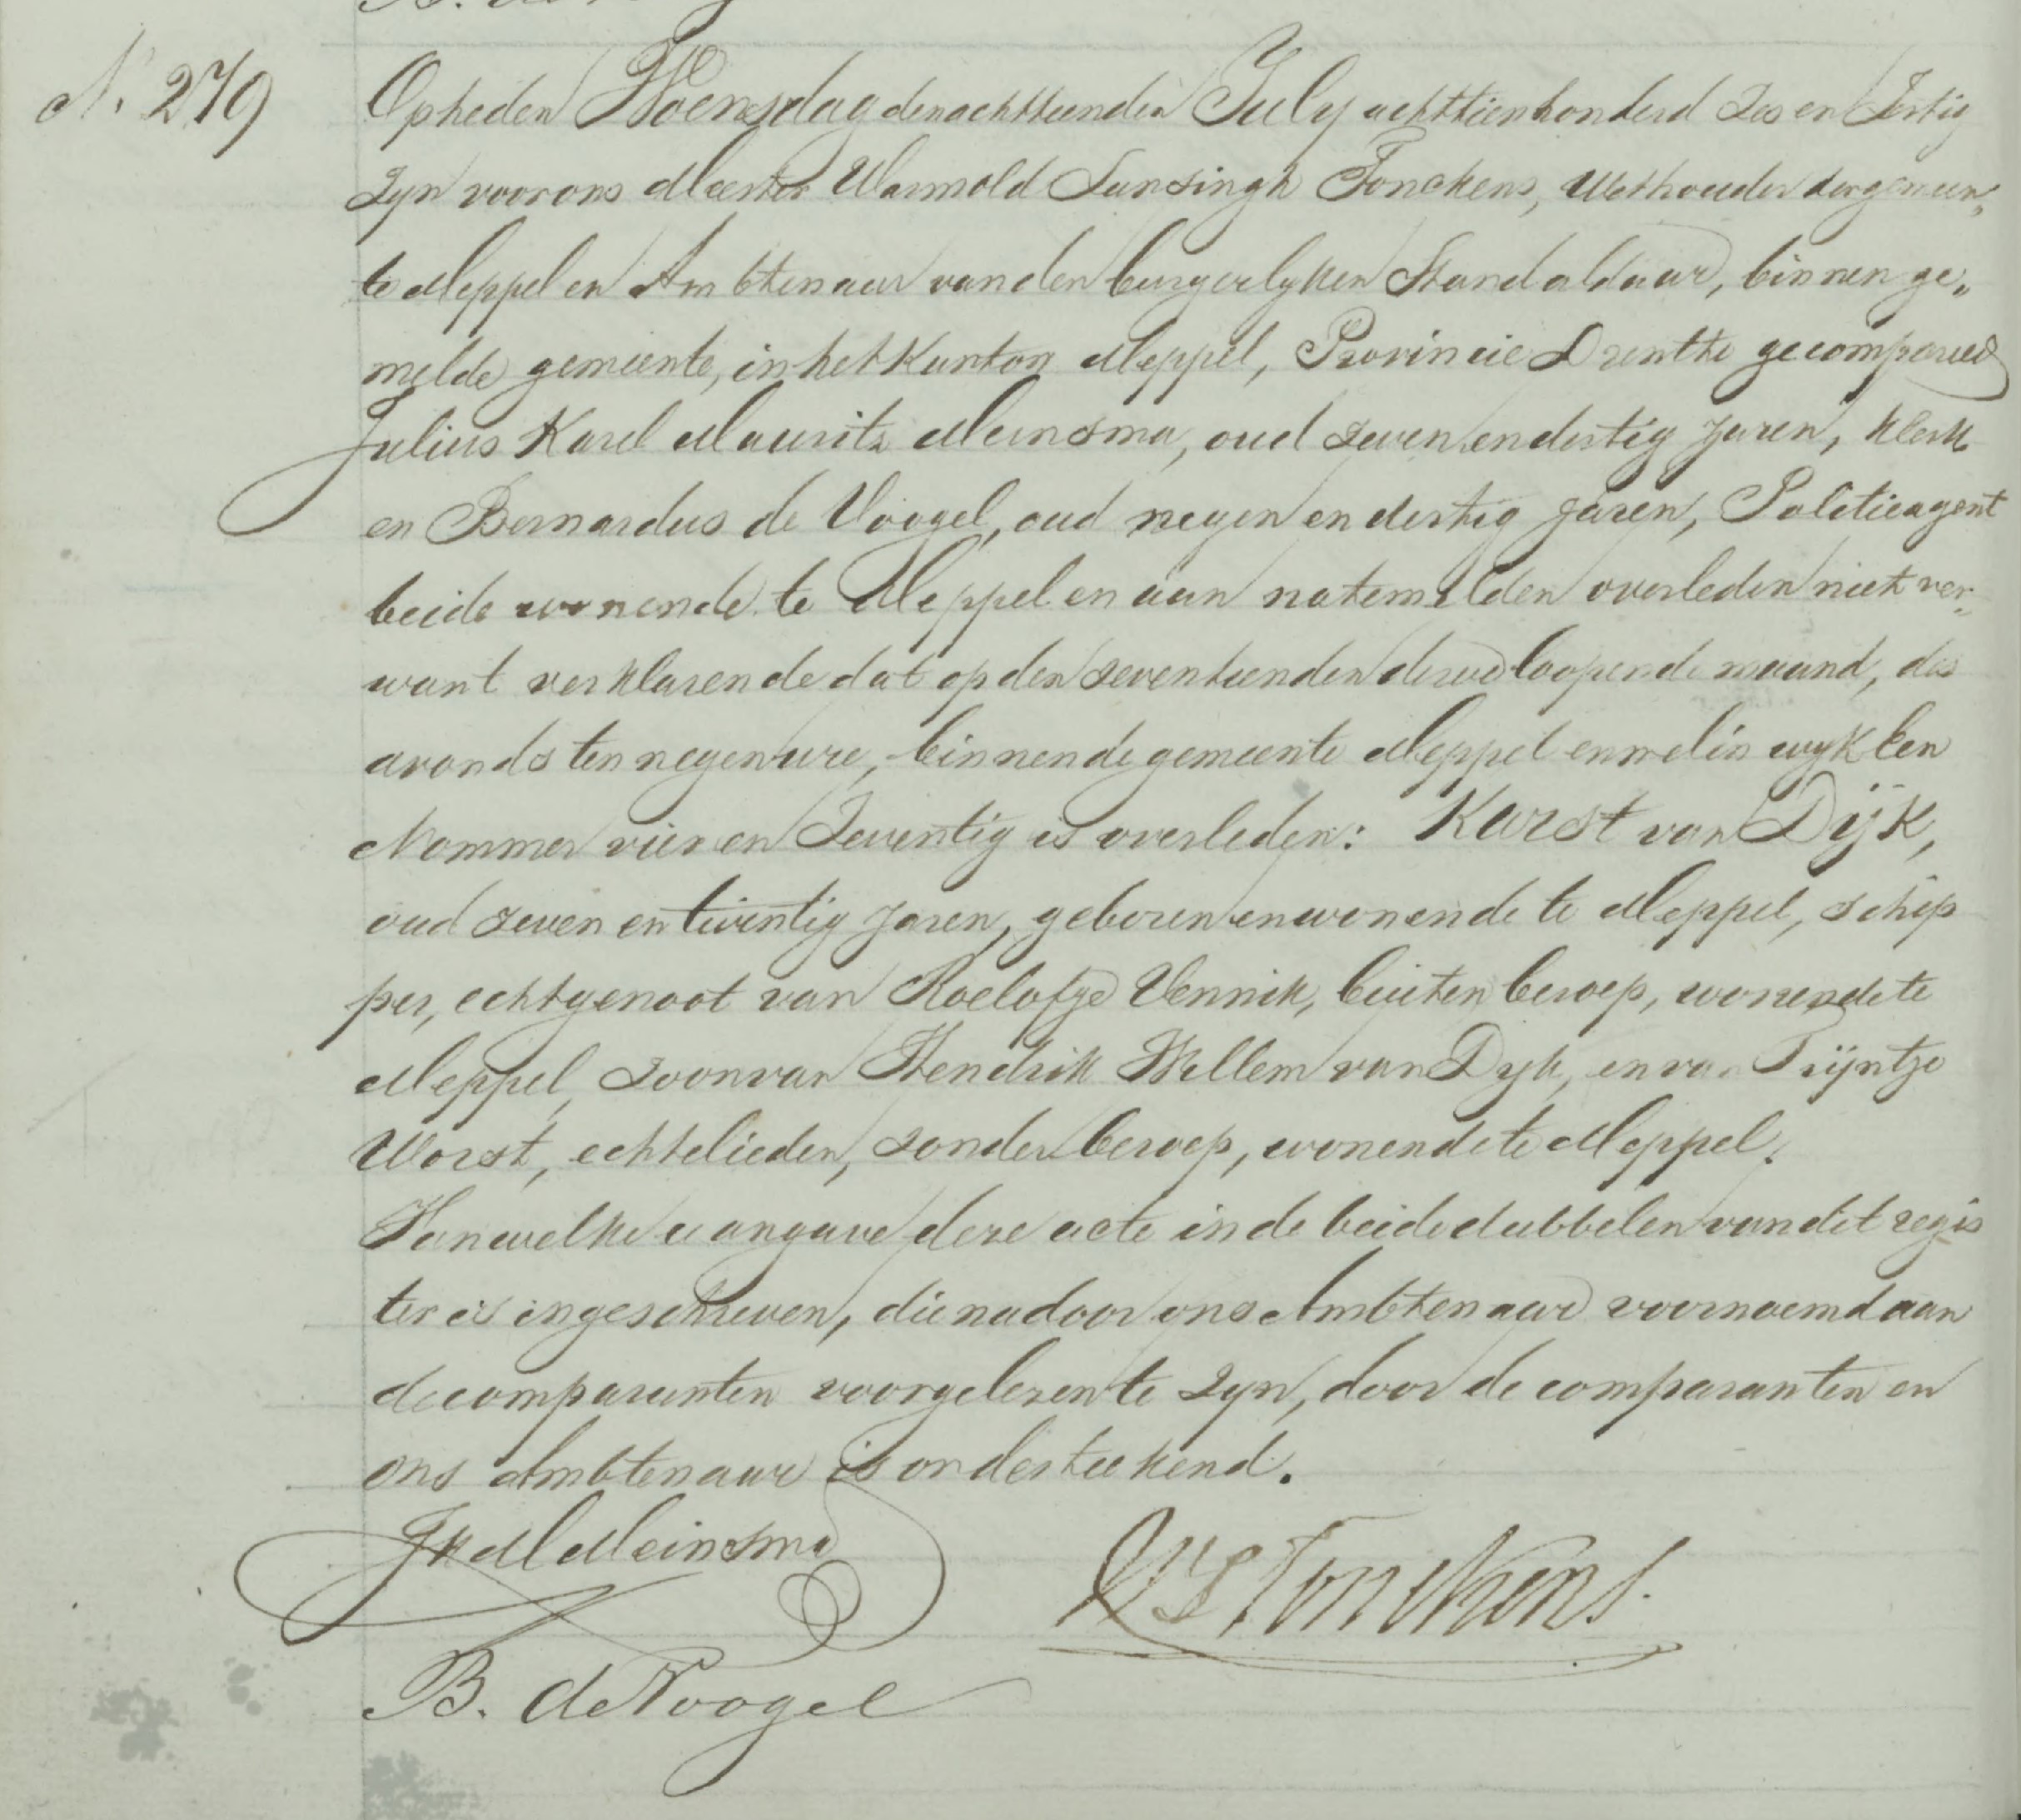 N. 279
Op heden Woensdag den achttienden July achttienhonderd Zes en Zestig
Zyn voor ons Meester Warmold Lunsingh Tonckens, Wethouder der gemeen„
te Meppel en Ambtenaar van den burgerlyken Stand aldaar, binnen ge„
melde gemeente, in het Kanton Meppel, Provincie Drenthe gecompareerd
Julius Karel Maurits Meinsma, oud zeven en dertig Jaren, klerk
en Bernardus de Voogel, oud negen en dertig Jaren, Politieagent
beide wonende te Meppel en aan natemelden overleden niet ver„
want verklarende dat op den zeventienden dezer loopende maand, des
avonds ten negen ure, binnen de gemeente Meppel en wel in wyk Een
Nommer vier en Zeventig is overleden: Karst van Dÿk,
oud zeven en twintig Jaren, geboren en wonende te Meppel, schip
per, echtgenoot van Roelofje Vennik, buiten beroep, wonende te
Meppel, Zoon van Hendrik Willem van Dyk, en van Trÿntje
Worst, echtelieden, zonder beroep, wonende te Meppel.
Van welke aangave deze acte in de beide dubbelen van dit regis
ter is ingeschreven, die na door ons Ambtenaar voornoemd aan
de comparanten voorgelezen te Zyn, door de comparanten en
ons Ambtenaar is onderteekend.
JKM Meinsma
WL Tonckens.
B. de Voogel